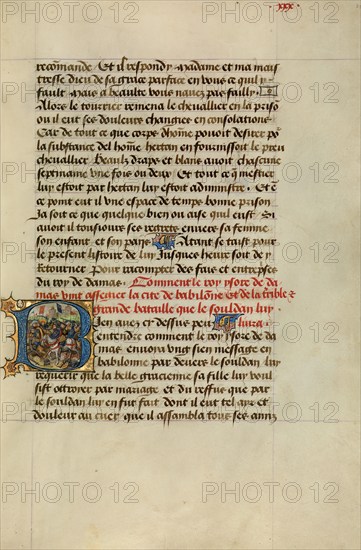 xxx.
recõmande Et il respondy Madame et ma mais
tresse dieu de sa grace parface en vous ce quil y
fault Mais a beaulte vous nauez pas failly
Allors le tourrier remena le cheuallier en la priso
ou il eut ses douleurs changies en consolations
Car de tout ce que corps dhõme pouoit desirer po
la substance del hõme hertan en fournissoit le preu
cheuallier Beaulx draps et blans auoit chascune
sepmaine vne fois ou deux Et tout ce q̃ mestier
luy estoit par hertan luy estoit administre Et a
ce point eut il vne espace de temps bonne prison
Ja soit ce que quelque bien ou aise quil eust Si
auoit il tousiours ses regrets enuers sa femme
son enfant et son pays Atant se taist pour
le present listoire de luy Jusques heure soit dy
Retourner Pour racompter des fais et entreprises
du roy de damas Comment le roy ysore de da
mas vint assegier la cite de babilõne et de la terrible
grande bataille que le souldan luy
Bien auez cy dessus peu liura
entendre comment le roy ysore de da
mas enuoia vng sien message en
babilonne par deuers le souldan luy
requerir que la belle gracienne sa fille luy voul
sist ottroyer par mariage et du reffus que par
le souldan luy en fut fait dont il eut tel ayr et
douleur au cuer que il assambla tous ses amis
PHOTO 12